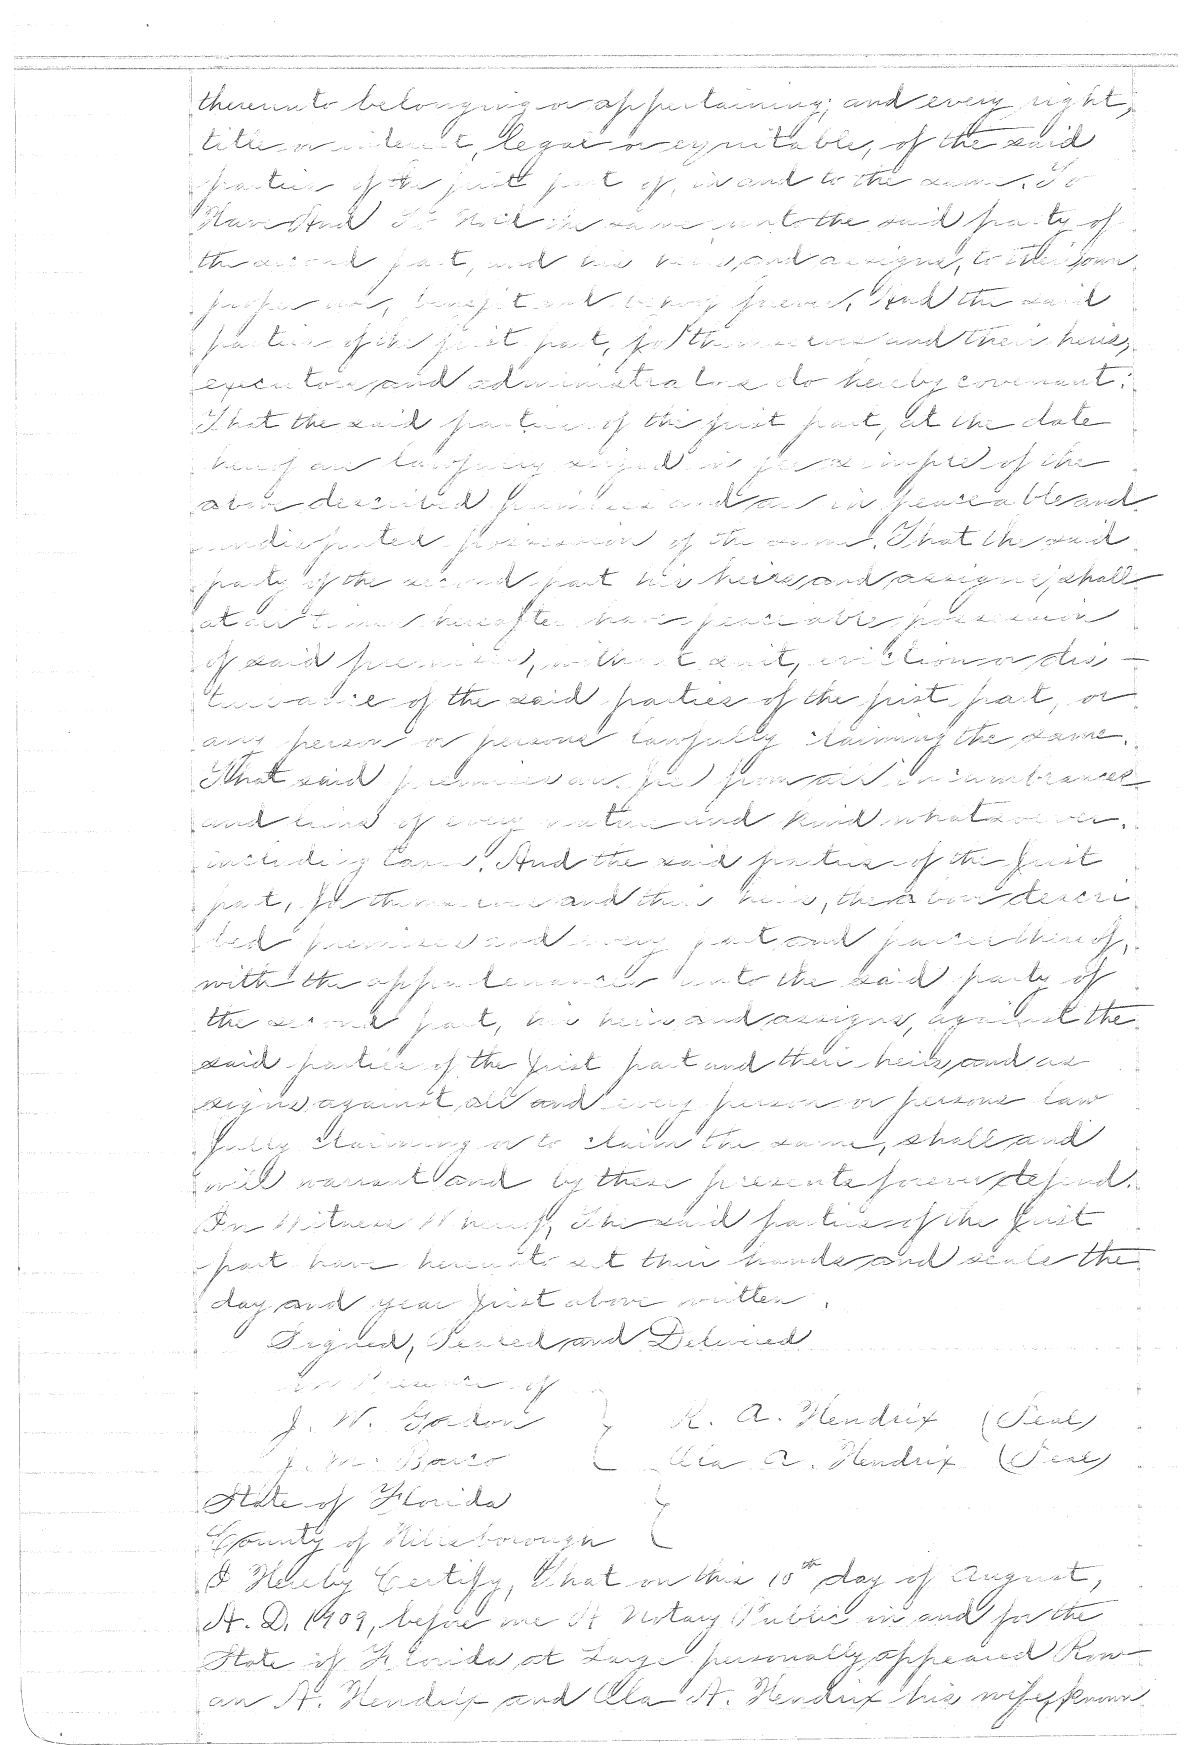 thereunto belonging or appertaining; and every right,
title or interest, legal or equitable, of the said
parties of the first part of, in and to the same. To
Have And To Hold the same unto the said party of
the second part, and his heirs and assigns, to their own
proper use, benefit and behoof forever. And the said
parties of the first part, for themselves and their heirs,
executors and administrators do hereby covenant:
That the said parties of the first part, at the date
hereof are lawfully seized in fee simple of the
above described premises and are in peaceable and
undisputed possession of the same. That the said
party of the second part his heirs and assigns, shall
at all times hereafter have peaceable possession
of said premises, without suit, eviction or dis-
turbance of the said parties of the first part, or
any person or persons lawfully claiming the same.
That said premises are free from all incumbrances
and liens of every nature and kind whatsoever.
including taxes. And the said parties of the first
part, for themselves and their heirs, the above descri
bed premises and every part and parcel thereof,
with the appurtenances unto the said party of
the second part, his heirs and assigns, against the
said parties of the first part and their heirs, and as
signs, against all and every person or persons law
fully claiming or to claim the same, shall and
will warrant and by these presents forever defend.
In Witness Whereof, The said parties of the first
part have hereunto set their hands and seals the
day and year first above written.
Signed, Sealed and Delivered
in Presence of
J. W. Gordon } R. A. Hendrix (Seal)
J. M. Barco { Ola A. Hendrix (Seal)
State of Florida }
County of Hillsborough {
I Hereby Certify, That on this 10th day of August,
A. D. 1909, before me A Notary Public in and for the
State of Florida at Large personally appeared Row-
an A. Hendrix and Ola A. Hendrix his wife, known